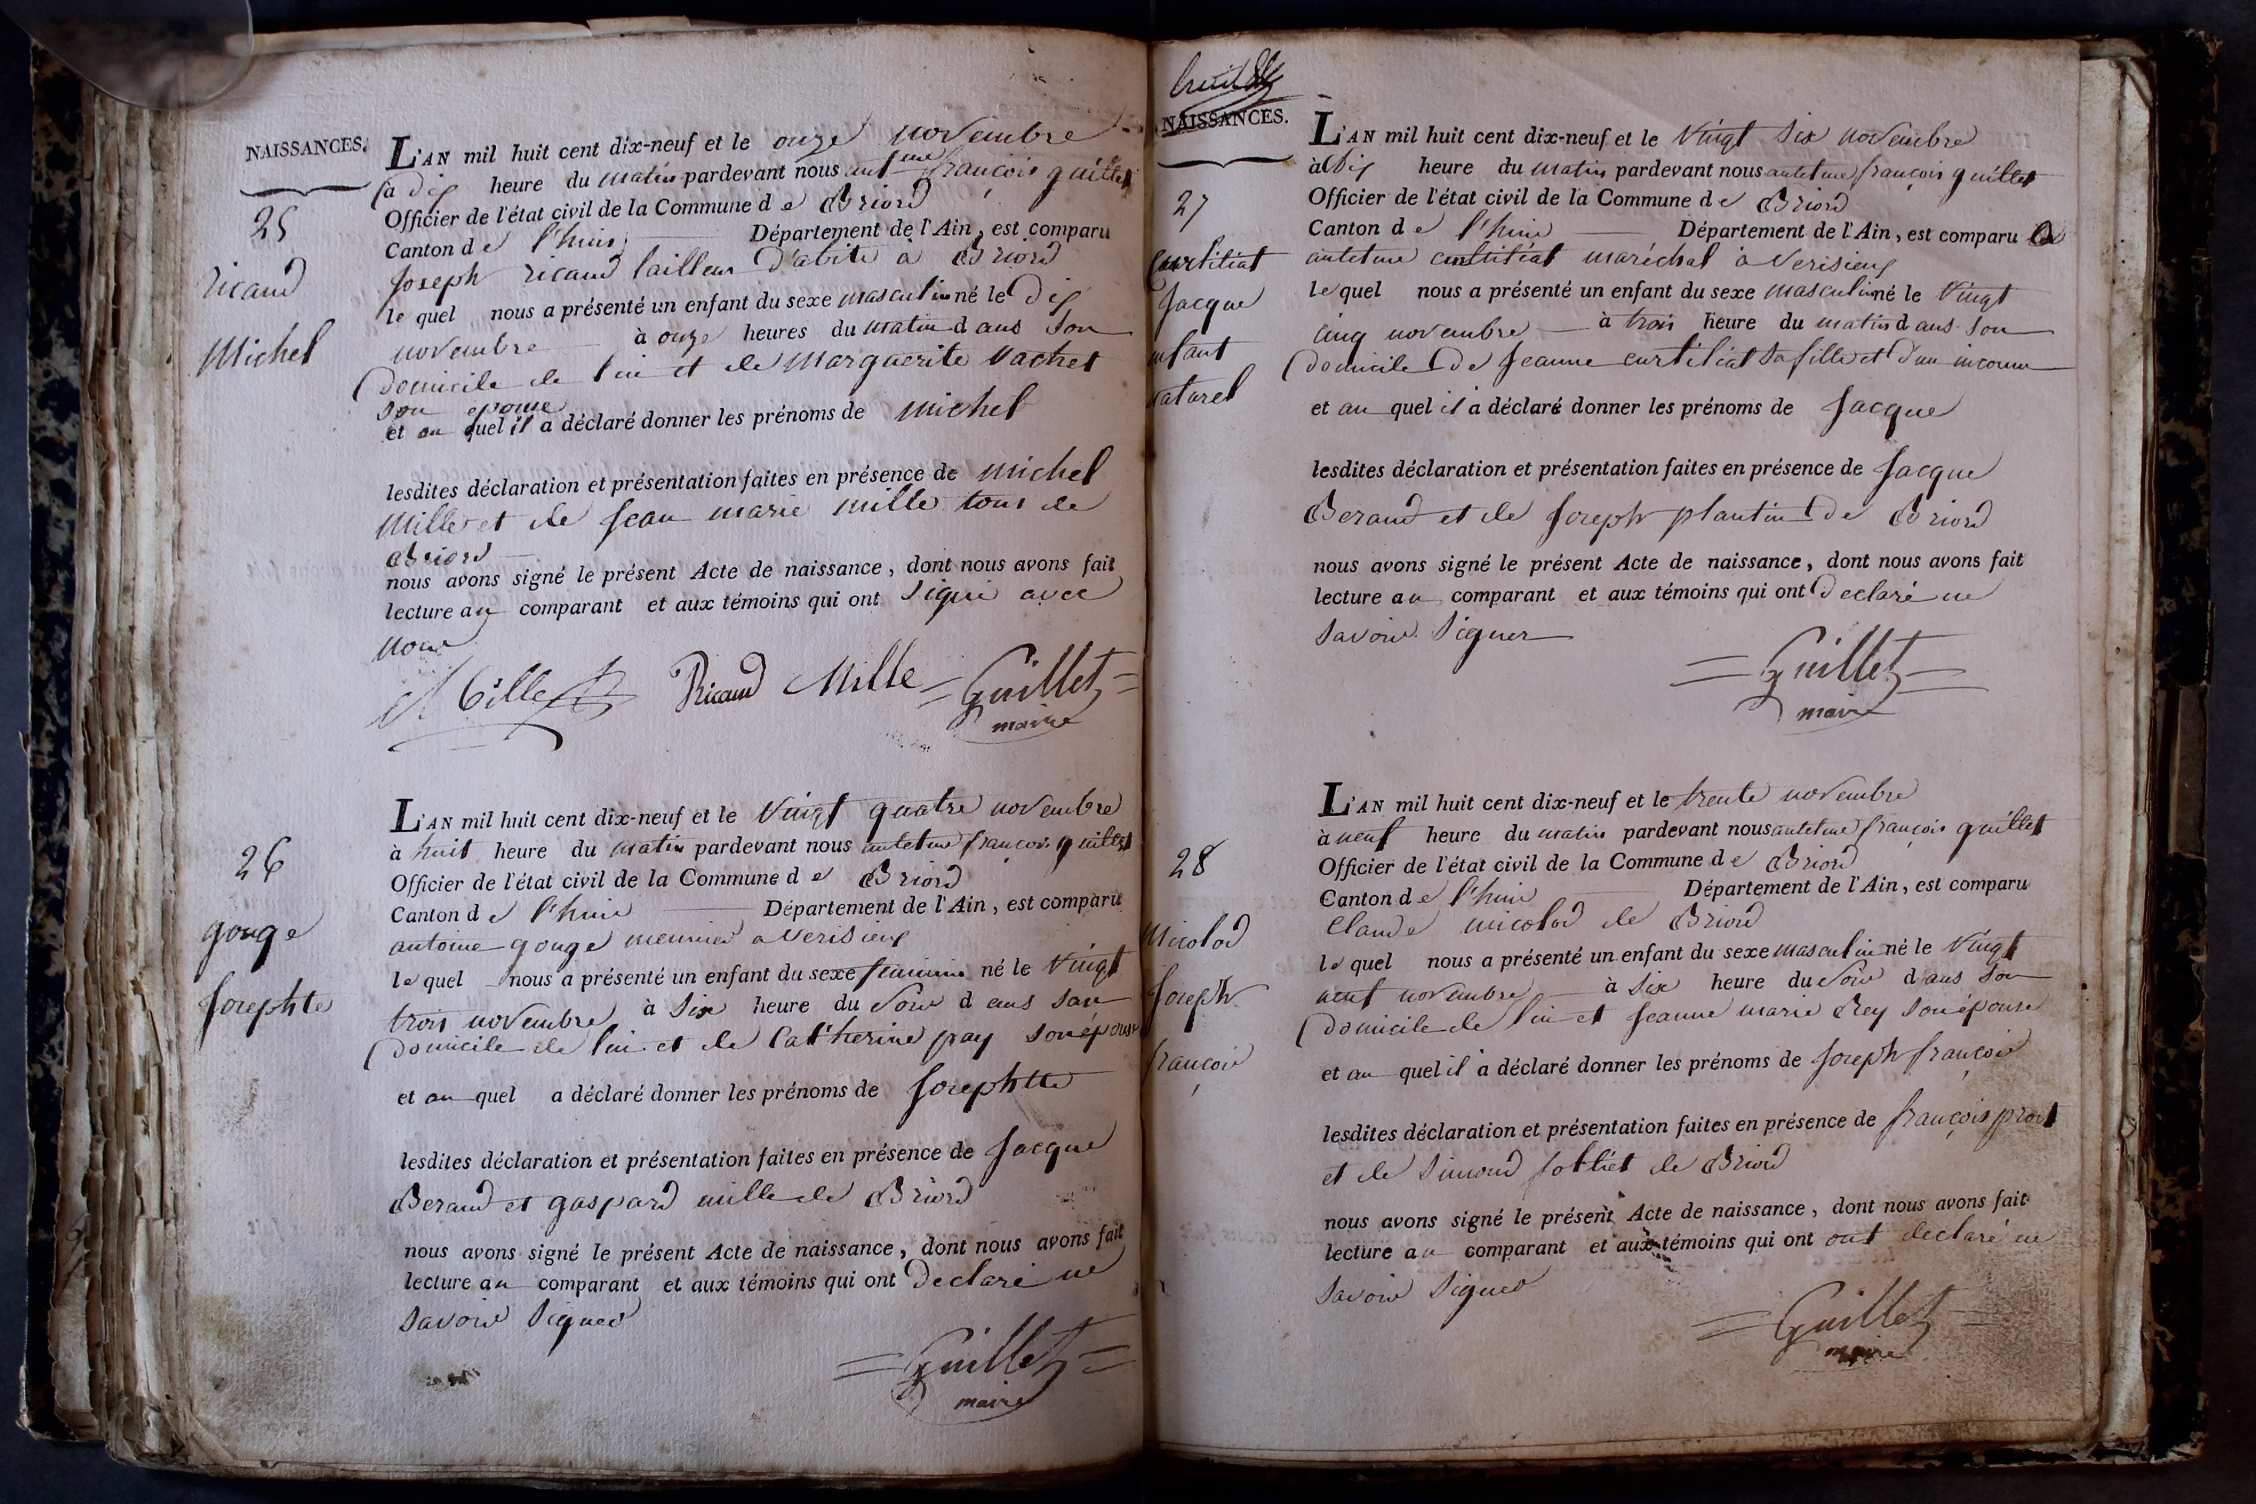 NAISSANCES.
25
ricaud
Michel
L'AN mil huit cent dix-neuf et le onze novembre
à dix heure du matin pardevant nous antme françois guillet
Officier de l'état civil de la Commune de Briord
Canton de l'huis Département de l'Ain, est comparu
Joseph ricaud tailleur d'abits à Briord
le quel nous a présenté un enfant du sexe masculin né le dix
novembre à onze heures du matin dans son
domicile de lui et de Marguerite Vachet
son epouse
et au quel il a déclaré donner les prénoms de michel
lesdites déclaration et présentation faites en présence de michel
Mille et de jean marie mille tous de
Briord
nous avons signé le présent Acte de naissance, dont nous avons fait
lecture au comparant et aux témoins qui ont signé avec
nous
Mille Ricaud Mille Guillet
maire
26
gouge
Josephte
L'AN mil huit cent dix-neuf et le vingt quatre novembre
à huit heure du matin pardevant nous antelme françois guillet
Officier de l'état civil de la Commune de Briord
Canton de l'huis Département de l'Ain, est comparu
antoine gouge meunier a Verisieux
le quel nous a présenté un enfant du sexe feminin né le vingt
trois novembre à six heure du soir dans son
domicile de lui et de Catherine pay son épouse
et au quel a déclaré donner les prénoms de Josephtte
lesdites déclaration et présentation faites en présence de Jacque
Beraud et gaspard mille de Briord
nous avons signé le présent Acte de naissance, dont nous avons fait
lecture au comparant et aux témoins qui ont declaré ne
savoir signer
Guillet
maire
NAISSANCES.
27
Curtiliat
Jacque
enfant
naturel
L'AN mil huit cent dix-neuf et le vingt six novembre
à dix heure du matin pardevant nous antelme françois guillet
Officier de l'état civil de la Commune de Briord
Canton de l'huis Département de l'Ain, est comparu
antelme curtiliat maréchal à Verisieux
le quel nous a présenté un enfant du sexe masculin né le vingt
cinq novembre à trois heure du matin dans son
domicile de Jeanne curtiliat sa fille et d'un inconnu
et au quel il a déclaré donner les prénoms de Jacque
lesdites déclaration et présentation faites en présence de Jacque
Beraud et de Joseph plantin de Briord
nous avons signé le présent Acte de naissance, dont nous avons fait
lecture au comparant et aux témoins qui ont declaré ne
savoir signer
Guillet
maire
28
Micolod
Joseph
françois
L'AN mil huit cent dix-neuf et le trente novembre
à neuf heure du matin pardevant nous antelme françois guillet
Officier de l'état civil de la Commune de Briord
Canton de l'huis Département de l'Ain, est comparu
Claude micolod de Briord
le quel nous a présenté un enfant du sexe masculin né le vingt
neuf novembre à six heure du soir dans son
domicile de lui et Jeanne marie Rey son épouse
et au quel il a déclaré donner les prénoms de Joseph françois
lesdites déclaration et présentation faites en présence de françois prost
et de simond jolliet de Briord
nous avons signé le présent Acte de naissance, dont nous avons fait
lecture au comparant et aux témoins qui ont ont declaré ne
savoir signer
Guillet
maire